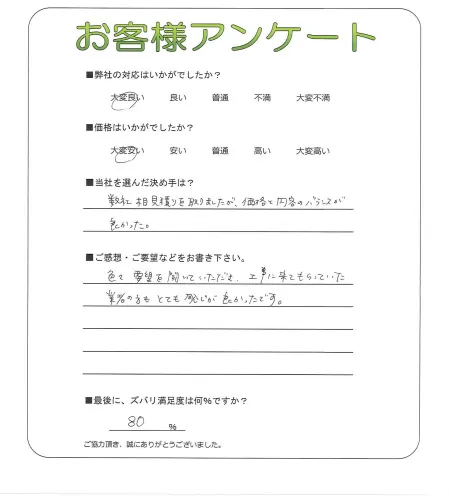 お客様アンケート
■弊社の対応はいかがでしたか？
大変良い 良い 普通 不満 大変不満
■価格はいかがでしたか？
大変安い 安い 普通 高い 大変高い
■当社を選んだ決め手は？
数社 相見積りを取りましたが、価格と内容のバランスが
良かった。
■ご感想・ご要望などをお書き下さい。
色々 要望を 聞いていただき、工事に来てもらっていた
業者の方も とても 感じが 良かったです。
■最後に、ズバリ満足度は何%ですか？
80 %
ご協力頂き、誠にありがとうございました。